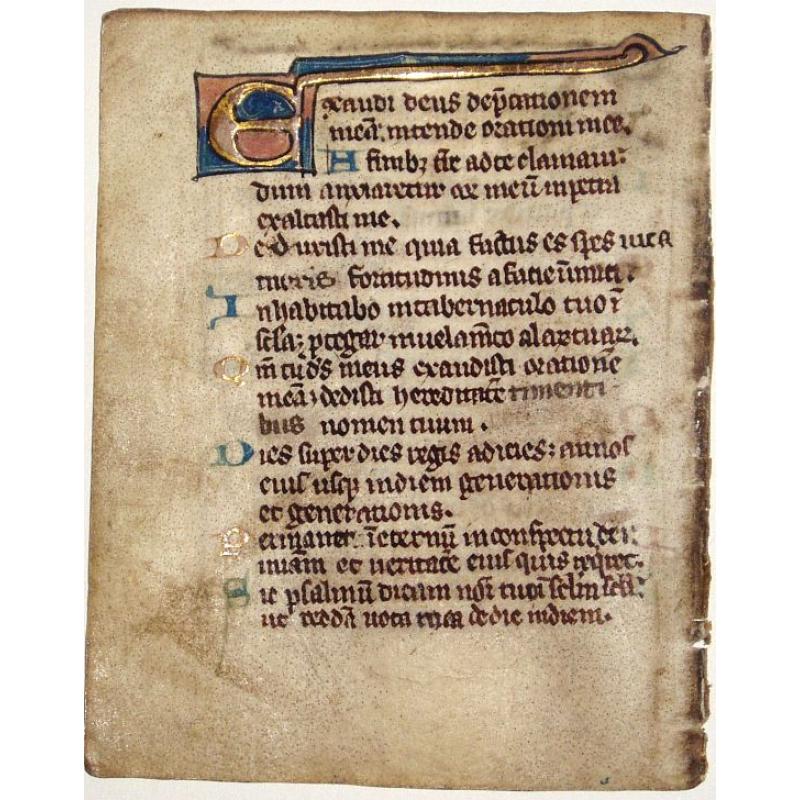 Exaudi deus dep̄cationem
meā. intende orationi mee.
A finibꝫ t̄re ad te clamaui:
dum anxiaretur cor meū in petra
exaltasti me.
Deduxisti me quia factus es spes mea
turris fortitudinis a facie inimici.
Inhabitabo in tabernaculo tuo ī
scl̄a: ꝓtegar in uelam̄to alarꝫ tuarꝫ.
Qm̄ tu ds̄ meus exaudisti orationē
meā: dedisti hereditatē timenti
bus nomen tuum.
Dies super dies regis adicies: annos
eius usqꝫ in diem generationis
et gen̄ationis.
Permanet ī eternū in conspectu dei:
miam̄ et ueritatē eius quis reqret.
Sic psalmū dicam noī tuo ī sclm̄ scli:
ut reddā uota mea de die in diem.